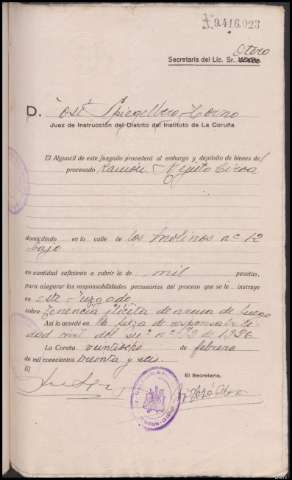 Nº 9.416.023
Otero
Secretaría del Lic. Sr.
D. José
Juez de Instrucción del Distrito del Instituto de La Coruña
El Alguacil de este juzgado procederá al embargo y depósito de bienes del
procesado Ramón
domiciliado en la calle de los Molinos nº 12
bajo
en cantidad suficiente a cubrir la de mil pesetas,
para asegurar las responsabilidades pecuniarias del proceso que se le instruye
en este Juzgado
sobre tenencia ilícita de armas de fuego
Así lo acordé en la pieza de responsabili
dad civil del nº 1936
La Coruña veintiseis de febrero
de mil novecientos treinta y seis.
El El Secretario,